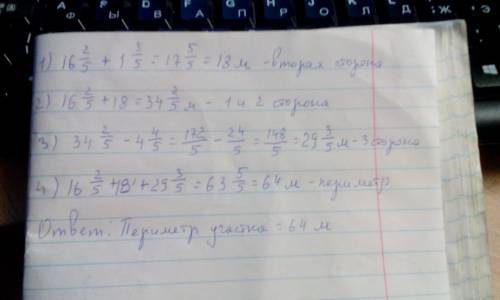 1) 16 2/5 + 1 3/5 = 17 5/5 = 18 м - вторая сторона
2) 16 2/5 + 18 = 34 2/5 м - 1 и 2 сторона
3) 34 2/5 - 4 4/5 = 172/5 - 24/5 = 148/5 = 29 3/5 м - 3 сторона
4) 16 2/5 + 18 + 29 3/5 = 63 5/5 = 64 м - периметр
Ответ: Периметр участка = 64 м